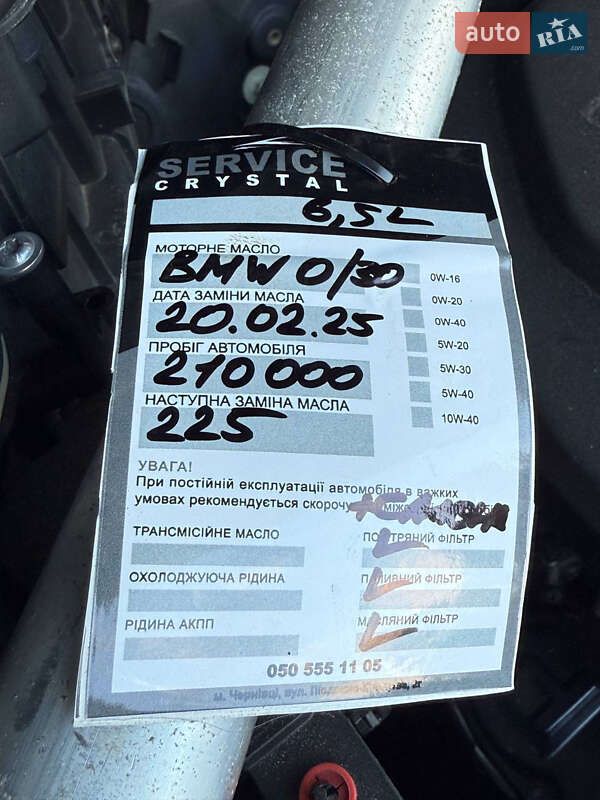 auto RIA .com
SERVICE
CRYSTAL
6,5L
МОТОРНЕ МАСЛО
BMW 0/30
0W-16
ДАТА ЗАМІНИ МАСЛА
0W-20
20.02.25
0W-40
ПРОБІГ АВТОМОБІЛЯ
5W-20
210 000
5W-30
НАСТУПНА ЗАМІНА МАСЛА
5W-40
225
10W-40
УВАГА!
При постійній експлуатації автомобіля в важких
умовах рекомендується
ТРАНСМІСІЙНЕ МАСЛО
ПОВІТРЯНИЙ ФІЛЬТР
ОХОЛОДЖУЮЧА РІДИНА
ПАЛИВНИЙ ФІЛЬТР
РІДИНА АКПП
МАСЛЯНИЙ ФІЛЬТР
050 555 11 05
м. Чернівці, вул.